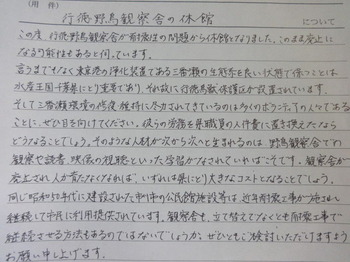 (用件)
行徳野鳥観察舎の休館 について
この度、行徳野鳥観察舎が耐震性の問題から休館となりました。このまま廃止に
なる可能性もあると伺っています。
言うまでもなく東京湾の浄化装置である三番瀬の生態系を良い状態で保つことは
水産王国千葉県にとり重要であり、それ故に行徳鳥獣保護区が設置されています。
そして三番瀬環境の修復、維持に尽力されているのは多くのボランティアの人々である
ことに、ぜひ目を向けてください。彼らの労務を県職員の人件費に置き換えたなら
どうなることでしょう。そのような人材が次から次へと生まれるのは野鳥観察舎での
観察や読書、映像の視聴といった学習がなされていればこそです。観察舎が
廃止され人が育たなくなれば、いずれは県にとり大きなコストとなることでしょう。
同じ昭和50年代に建設された市川市の公民館施設等は、近年耐震工事が施されて
継続して市民に利用提供されています。観察舎も、立て替えでなくとも耐震工事で
継続させる方法もあるのではないでしょうか。ぜひともご検討いただけますよう
お願い申し上げます。